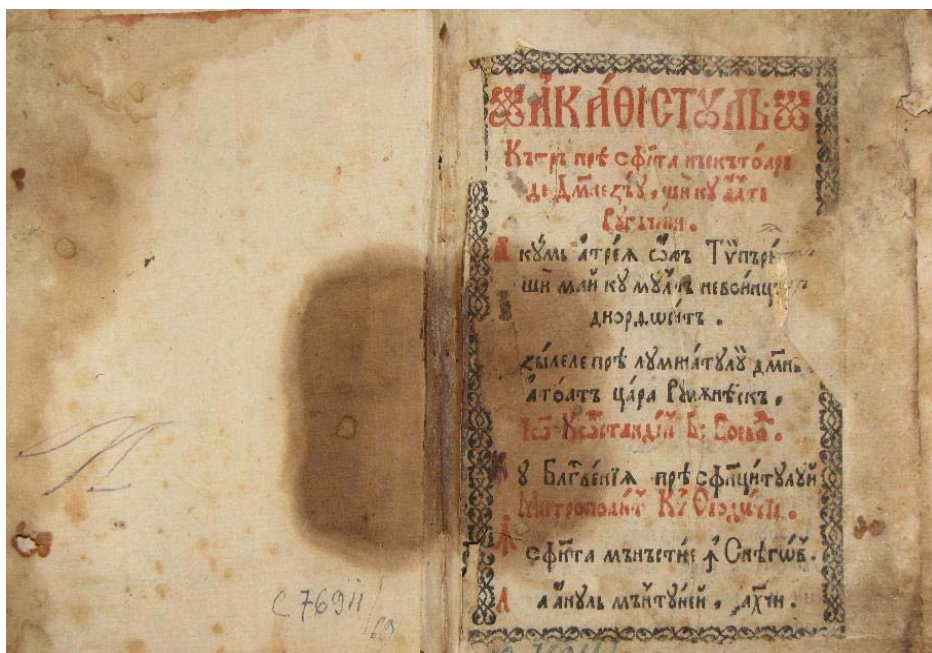 С 76911/69
АКАѲІСТꙊЛЬ:
Кътръ прѣ сфн҃та нъскътоаре
де Дм҃незѣу, шѝ ку алте
Ругъчюни.
Акꙋмь атрѣѧ ѡаръ Тѵпърит
шѝ май ку мулть невоинцъ
дио҆рѳѡсить.
зылеле прѣ луминатулуй дмн
атоатъ цара Румѫнѣскъ,
Іѡ Кѡстандин Б: Воевѡ.
Кꙋ Бл҃гвенїѧ прѣ сфин҃цитулуй
Митрополит Кѵ Ѳеодосїе.
А сфн҃та мънъстире ꙟ Снѣгѡв.
Ла анꙋль мъйтꙋией, ҂ахчи.